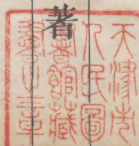 著
天津市
人民圖
書館藏
書之章